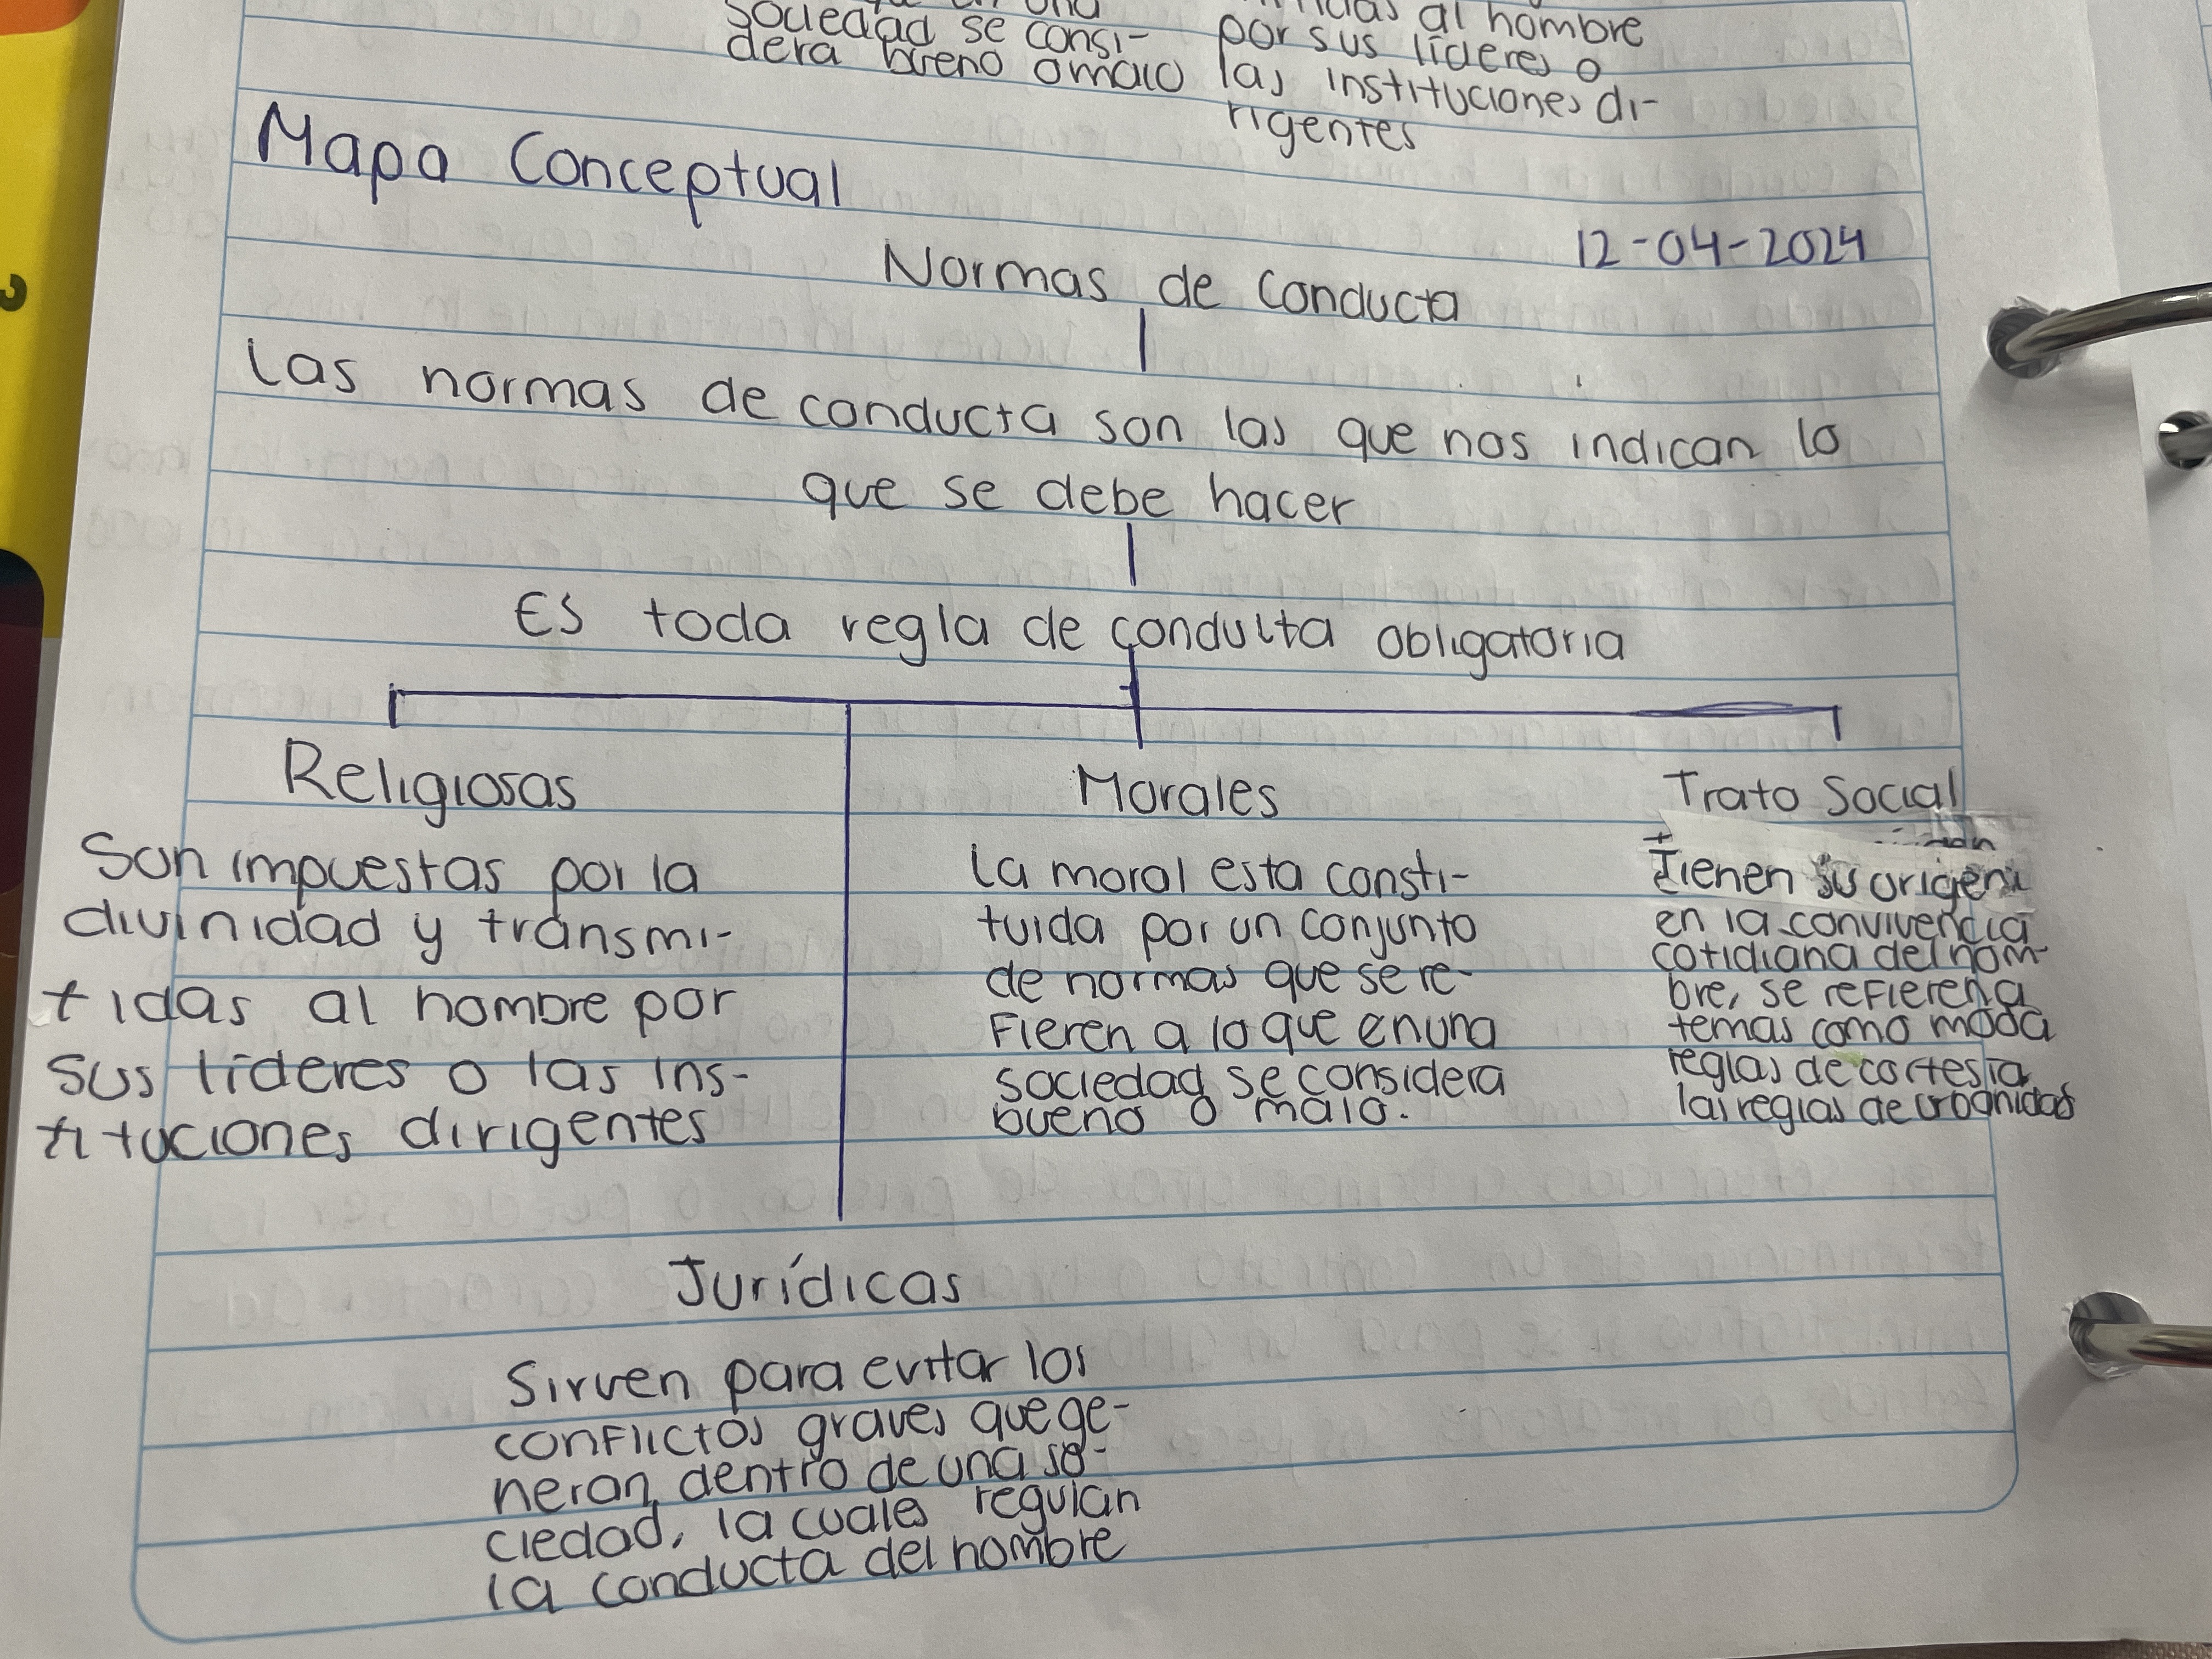 sociedad se consi-
dera bueno o malo
al hombre
por sus líderes o
las instituciones di-
rigentes
Mapa Conceptual
12-04-2024
Normas de conducta
Las normas de conducta son las que nos indican lo
que se debe hacer
Es toda regla de conducta obligatoria
Religiosas
Son impuestas por la
divinidad y transmi-
tidas al hombre por
sus líderes o las ins-
tituciones dirigentes
Morales
La moral esta consti-
tuida por un conjunto
de normas que se re-
fieren a lo que en una
sociedad se considera
bueno o malo.
Trato Social
Tienen su origen
en la convivencia
cotidiana del hom-
bre, se refieren a
temas como moda
reglas de cortesia
las reglas de urbanidad
Jurídicas
Sirven para evitar los
conflictos graves que ge-
neran dentro de una so-
ciedad, la cuales regulan
la conducta del hombre